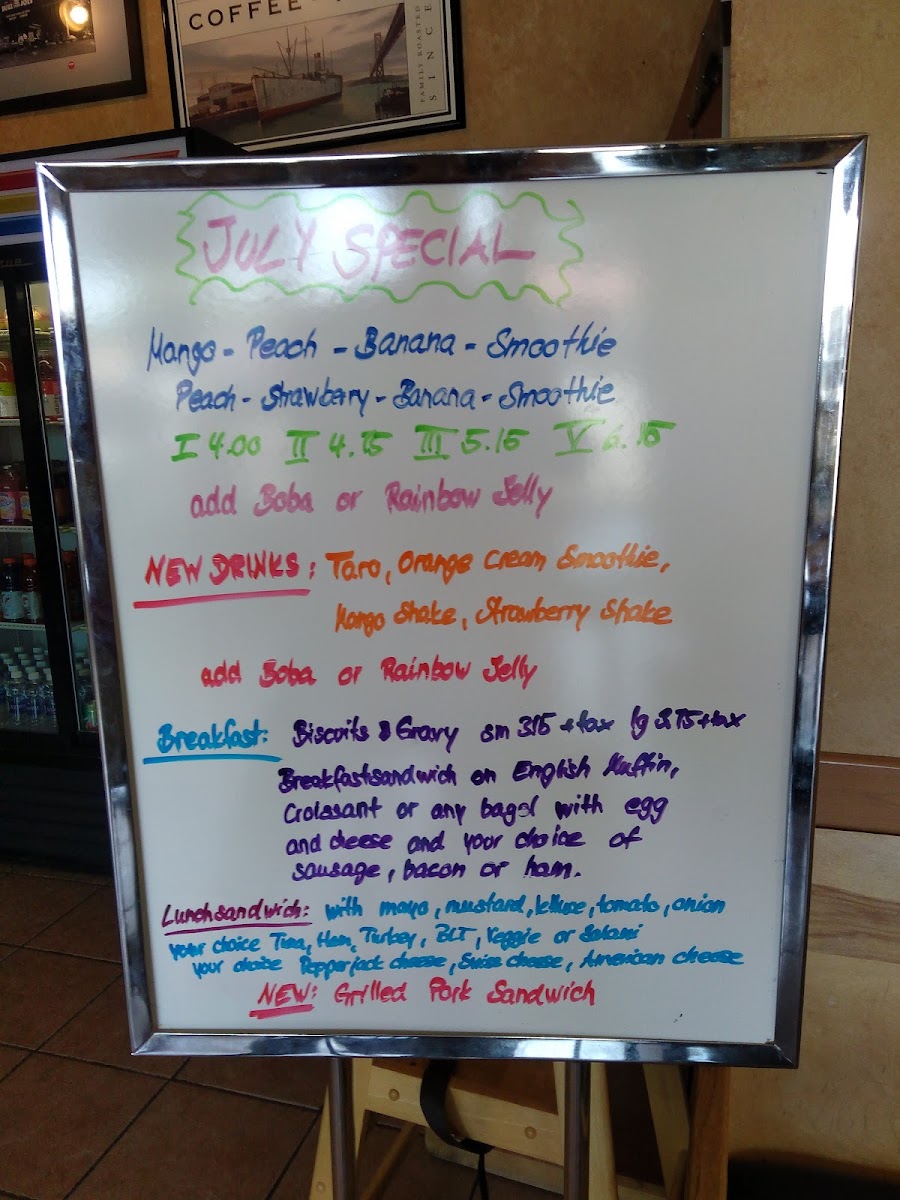 COFFEE
FAMILY ROASTED
SINCE
JULY SPECIAL
Mango - Peach - Banana - Smoothie
Peach - Strawberry - Banana - Smoothie
I 4.00 II 4.75 III 5.15 V 6.15
add Boba or Rainbow Jelly
NEW DRINKS: Taro, Orange Cream Smoothie,
Mango Shake, Strawberry Shake
add Boba or Rainbow Jelly
Breakfast: Biscuits & Gravy sm 3.15 + tax lg 3.75 + tax
Breakfastsandwich on English Muffin,
Croissant or any bagel with egg
and cheese and your choice of
sausage, bacon or ham.
Lunchsandwich: with mayo, mustard, lettuce, tomato, onion
your choice Tuna, Ham, Turkey, BLT, Veggie or Salami
your choice Pepperjack cheese, Swiss cheese, American cheese
NEW: Grilled Pork Sandwich